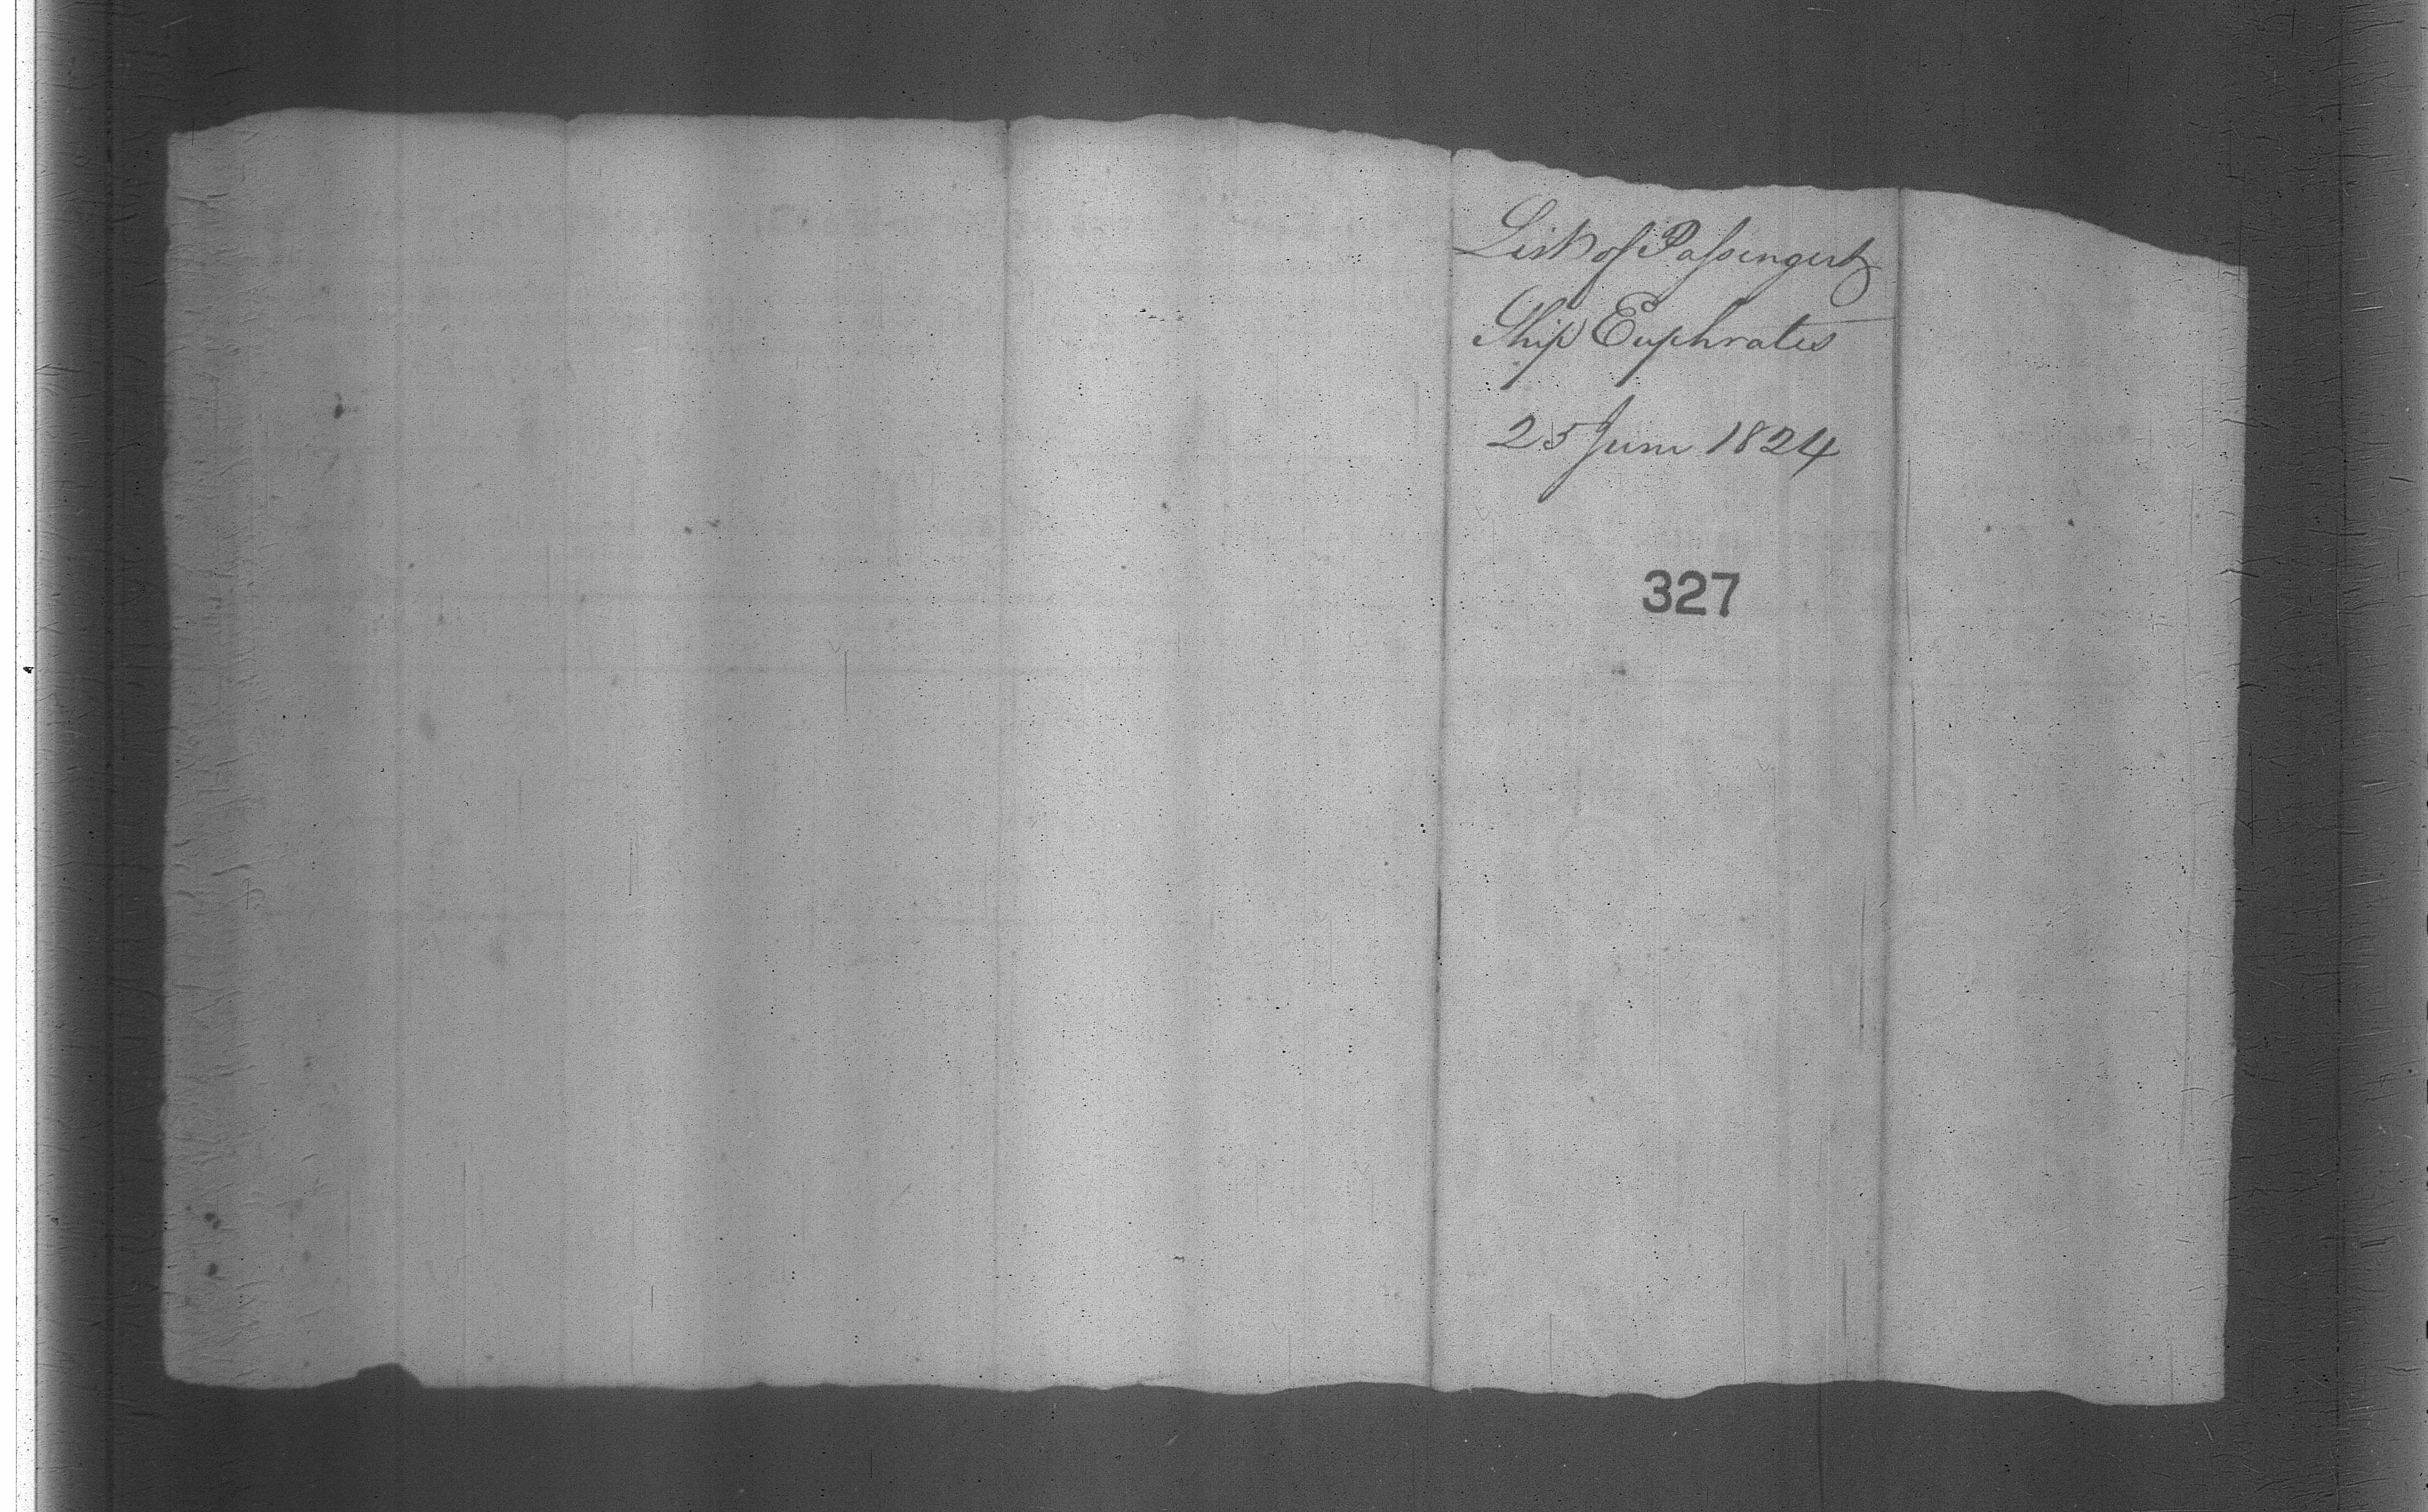 List of Passengers
Ship Euphrates
25 June 1824
327